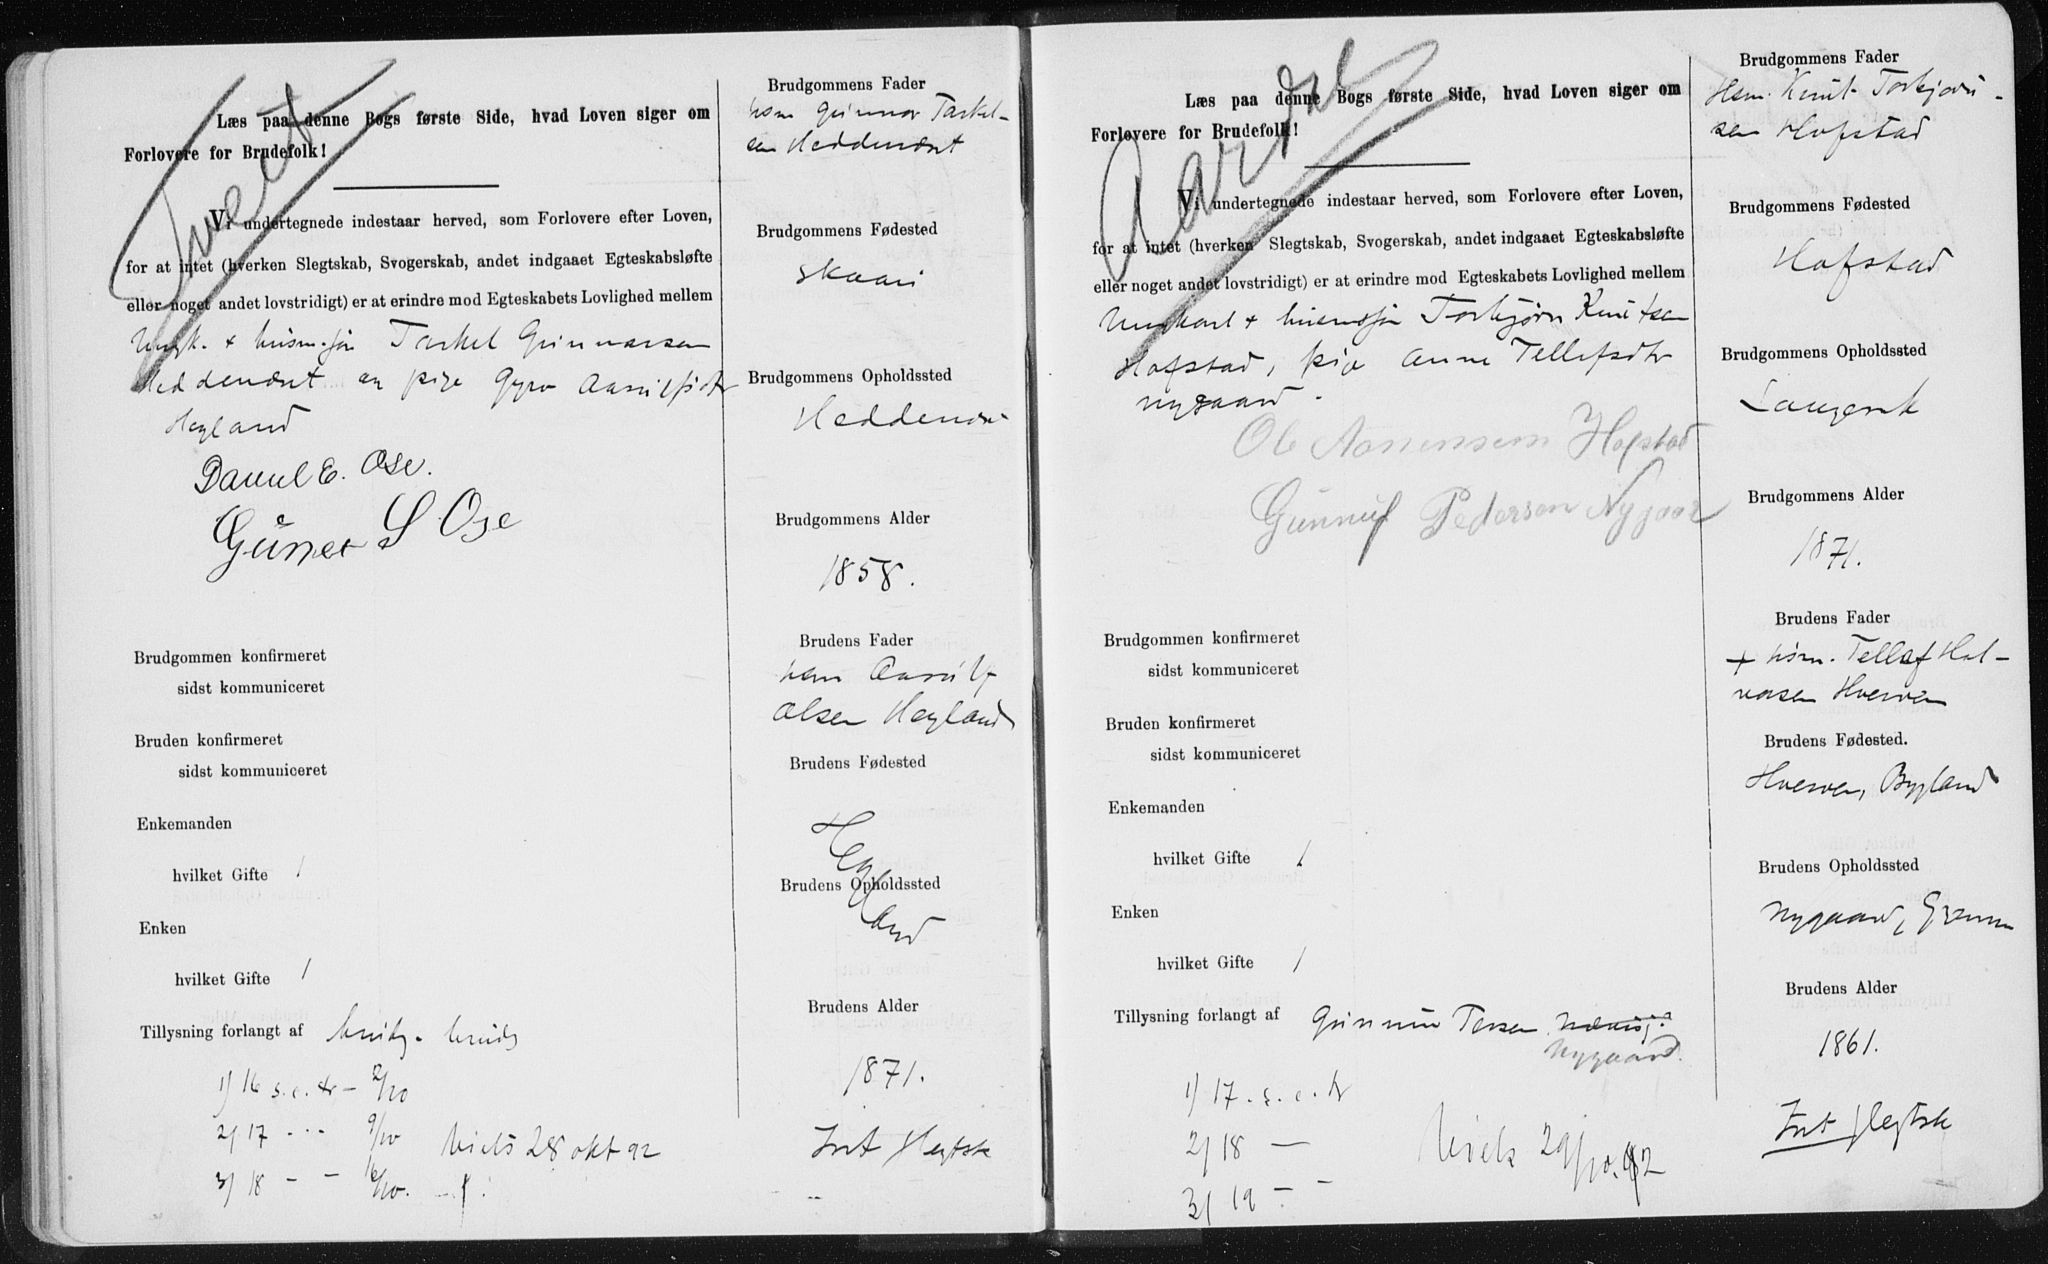 Læs paa denne Bogs første Side, hvad Loven siger om
Forlovere for Brudefolk!
Vi undertegnede indestaar herved, som Forlovere efter Loven,
for at intet (hverken Slegtskab, Svogerskab, andet indgaaet Egteskabsløfte
eller noget andet lovstridigt) er at erindre mod Egteskabets Lovlighed mellem
Ungk. + husm.søn Tarkel Gunnarsen
Heddenæst pige Gyro
Heyland
Daniel E. Ose.
S Ose
Brudgommen konfirmeret
sidst kommuniceret
Bruden konfirmeret
sidst kommuniceret
Enkemanden
hvilket Gifte 1
Enken
hvilket Gifte 1
Tillysning forlangt af
1) 16 s.e.tr – 2/10
2) 17 - - - 9/10
3) 18 - - 16/10.
Viels 28 okt 92
Brudgommens Fader
husm Gunnar Tarkel-
sen Heddenæst
Brudgommens Fødested
Skaari
Brudgommens Opholdssted
Heddenæs
Brudgommens Alder
1858.
Brudens Fader
husm Aasulf
Olsen Heyland
Brudens Fødested
Heyland
Brudens Opholdssted
Brudens Alder
1871.
Int Slegtsk
Læs paa denne Bogs første Side, hvad Loven siger om
Forlovere for Brudefolk!
Vi undertegnede indestaar herved, som Forlovere efter Loven,
for at intet (hverken Slegtskab, Svogerskab, andet indgaaet Egteskabsløfte
eller noget andet lovstridigt) er at erindre mod Egteskabets Lovlighed mellem
Ungkarl + husmsøn Torbjørn Knutsen
Hofstad, pige Anne Tellefsdtr
Nygaard.
Ole Aanensen Hofstad
Gunnuf Pedersen Nygaar
Brudgommen konfirmeret
sidst kommuniceret
Bruden konfirmeret
sidst kommuniceret
Enkemanden
hvilket Gifte 1
Enken
hvilket Gifte 1
Tillysning forlangt af Tersen
Nygaard.
1) 17. s.e.tr
2) 18 —
3) 19 - -
Viels 29/10.92
Brudgommens Fader
Hsm. Knut Torbjørn-
sen Hofstad
Brudgommens Fødested
Hofstad
Brudgommens Opholdssted
Langerak
Brudgommens Alder
1871.
Brudens Fader
+ husm. Tellef Hal-
vorsen Hverven
Brudens Fødested.
Hverven, Bygland
Brudens Opholdssted
Nygaard, Grænn
Brudens Alder
1861.
Int Slegtsk